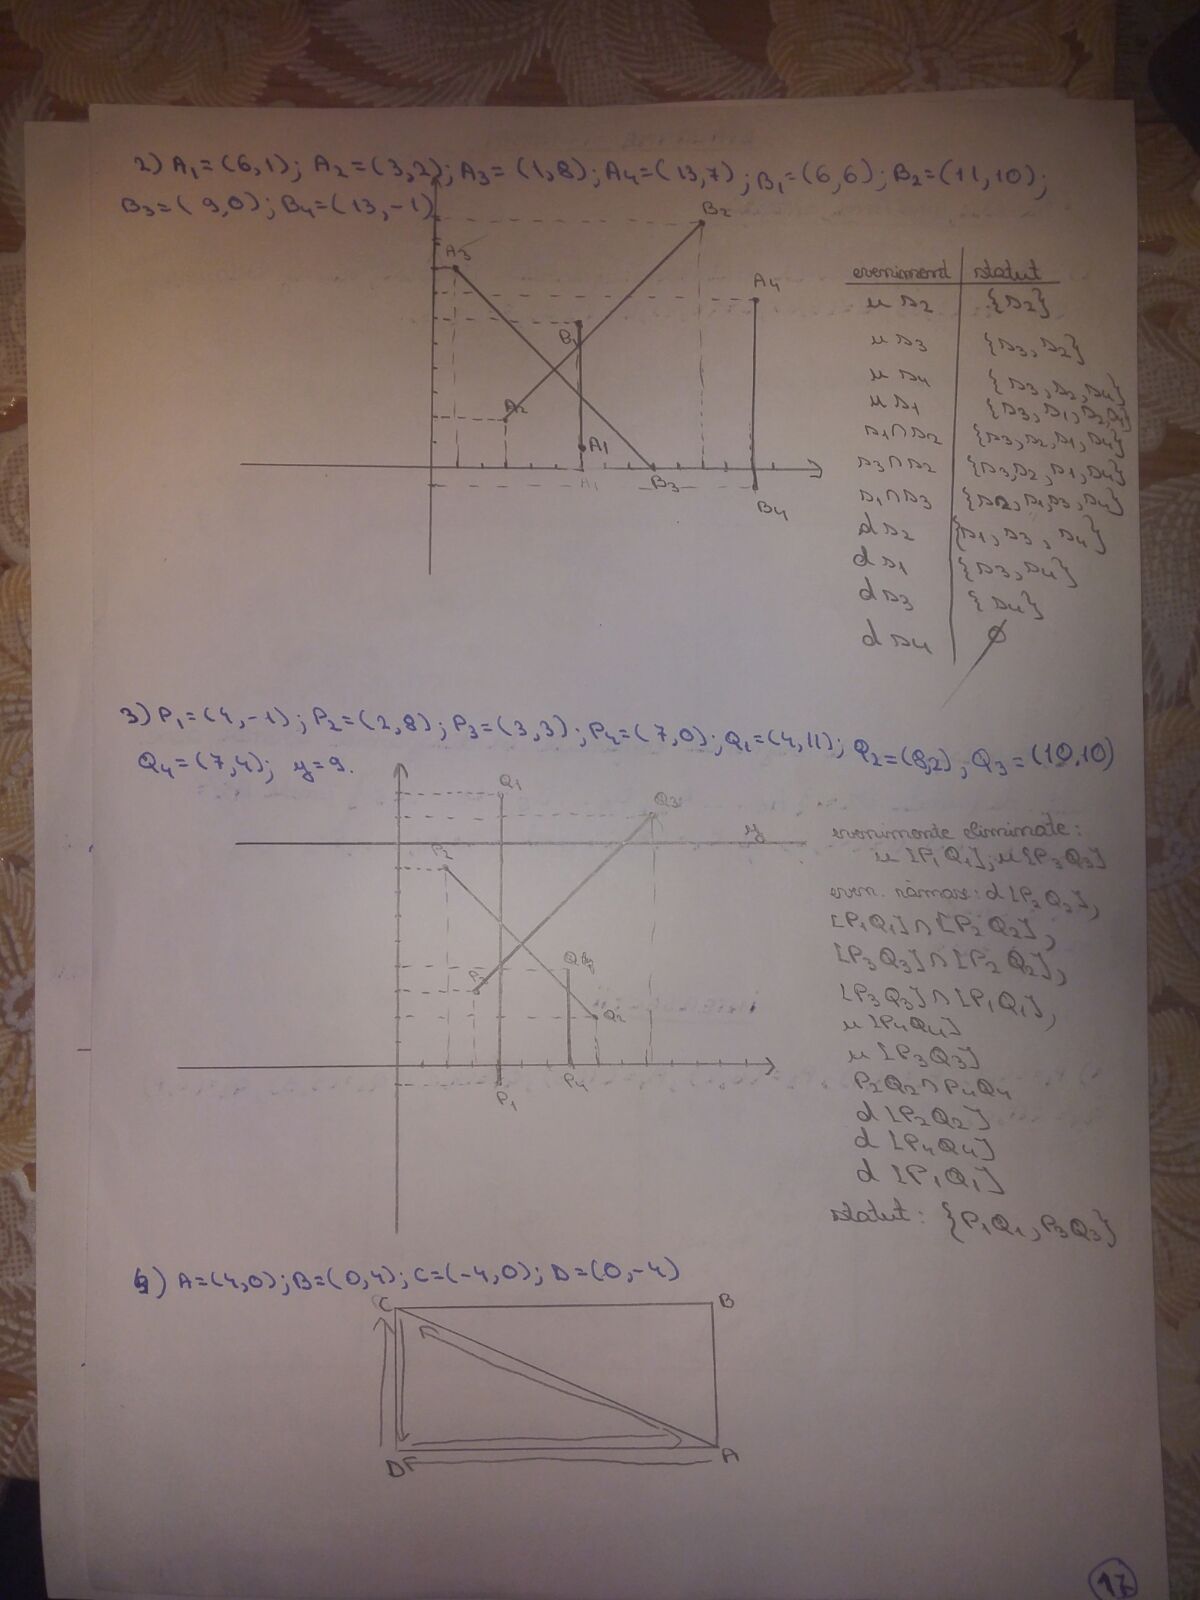 2) A1=(6,1); A2=(3,2); A3=(1,8); A4=(13,7); B1=(6,6); B2=(11,10);
B3=(9,0); B4=(13,-1)
B2
A3
A4
B1
A2
A1
A1
B3
B4
evenimend | statut
u s2 | {s2}
u s3 | {s3, s2}
u s4 | {s3, s2, s4}
u s1 | {s3, s1, s2, s4}
s1∩s2 | {s3, s2, s1, s4}
s3∩s2 | {s3, s2, s1, s4}
s1∩s3 | {s2, s1, s3, s4}
d s2 | {s1, s3, s4}
d s1 | {s3, s4}
d s3 | {s4}
d s4 | ∅
3) P1=(4,-1); P2=(2,8); P3=(3,3); P4=(7,0); Q1=(4,11); Q2=(8,2), Q3=(10,10)
Q4=(7,4); y=9.
Q1
Q3
y
P2
Q4
P3
Q2
P1
P4
evenimente eliminate:
u [P1Q1]; u[P3Q3]
even. rămase: d[P2Q2],
[P1Q1]∩[P2Q2],
[P3Q3]∩[P2Q2],
[P3Q3]∩[P1Q1],
u [P4Q4]
u [P3Q3]
P2Q2∩P4Q4
d [P2Q2]
d [P4Q4]
d [P1Q1]
statut: {P1Q1, P3Q3}
4) A=(4,0); B=(0,4); C=(-4,0); D=(0,-4)
C
B
D
A
17